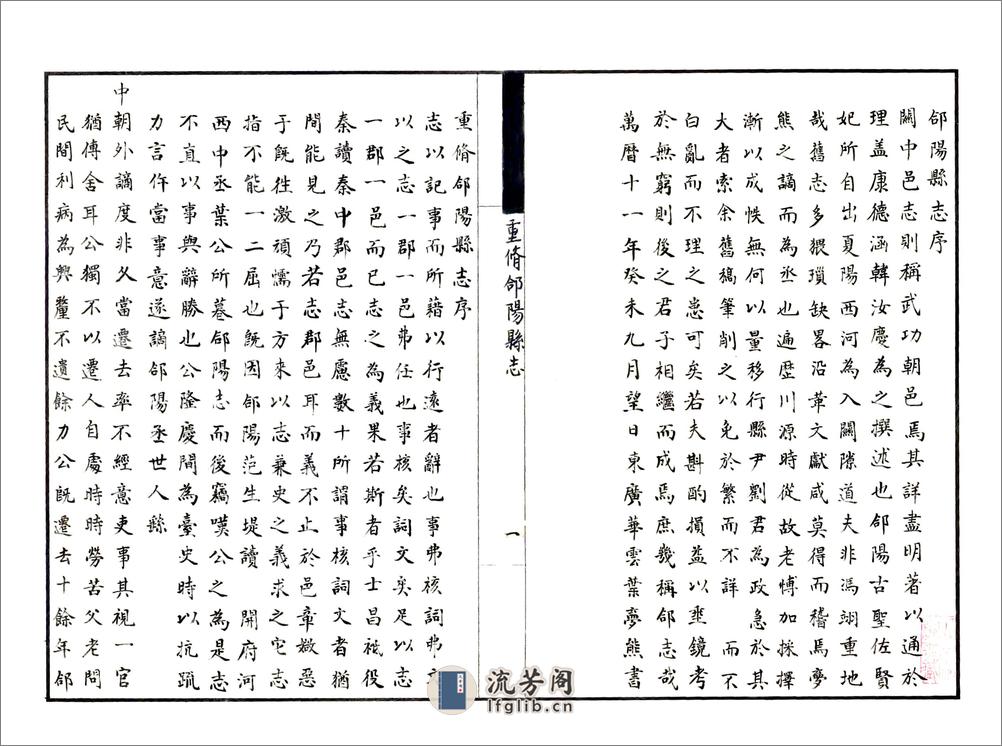 郃陽縣志序
關中邑志則稱武功朝邑焉其詳盡明著以通於
理盖康德涵韓汝慶為之撰述也郃陽古聖佐賢
妃所自出夏陽西河為入關隙道夫非馮翊重地
哉舊志多猥瑣缺畧沿革文獻咸莫得而稽焉夢
熊之謫而為丞也遍歷川源時從故老愽加採擇
漸以成帙無何以量移行縣尹劉君為政急於其
大者索余舊稿筆削之以免於繁而不詳 而不
白亂而不理之患可矣若夫斟酌損益以垂鏡考
於無窮則後之君子相繼而成焉庶幾稱郃志哉
萬曆十一年癸未九月望日東廣華雲葉夢熊書
重脩郃陽縣志
一
重脩郃陽縣志序
志以記事而所藉以行遠者辭也事弗核詞弗文
以之志一郡一邑弗任也事核矣詞文矣足以志
一郡一邑而已志之為義果若斯者乎士昌祗役
秦讀秦中郡邑志無慮數十所謂事核詞文者猶
間能見之乃若志郡邑耳而義不止於邑章媺惡
于既徃激頑懦于方來以志兼史之義求之它志
指不能一二屈也既因郃陽范生堤讀 開府河
西中丞葉公所纂郃陽志而後竊嘆公之為是志
不直以事與辭勝也公隆慶間為臺史時以抗疏
力言忤當事意遂謫郃陽丞世人繇
中朝外謫度非久當遷去率不經意吏事其視一官
猶傳舍耳公獨不以遷人自處時時勞苦父老問
民間利病為興釐不遺餘力公既遷去十餘年郃
流芳阁
lfglib.cn